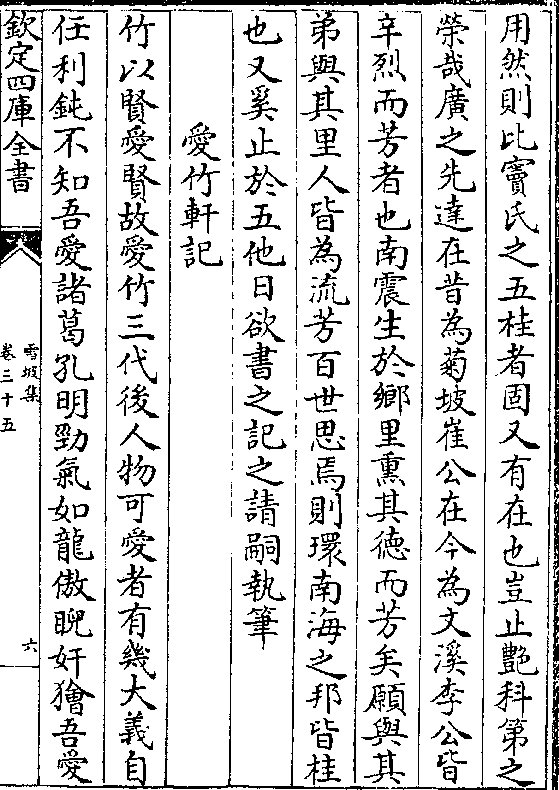 用然則比竇氏之五桂者固又有在也豈止艷科第之
榮哉廣之先達在昔為菊坡崔公在今為文溪李公皆
辛烈而芳者也南震生於鄉里熏其德而芳矣願與其
弟與其里人皆為流芳百世思焉則環南海之邦皆桂
也又奚止於五他日欲書之記之請嗣執筆
愛竹軒記
竹以賢愛賢故愛竹三代後人物可愛者有幾大義自
任利鈍不知吾愛諸葛孔明勁氣如龍傲睨奸獪吾愛
欽定四庫全書
雪坡集
卷三十五
六